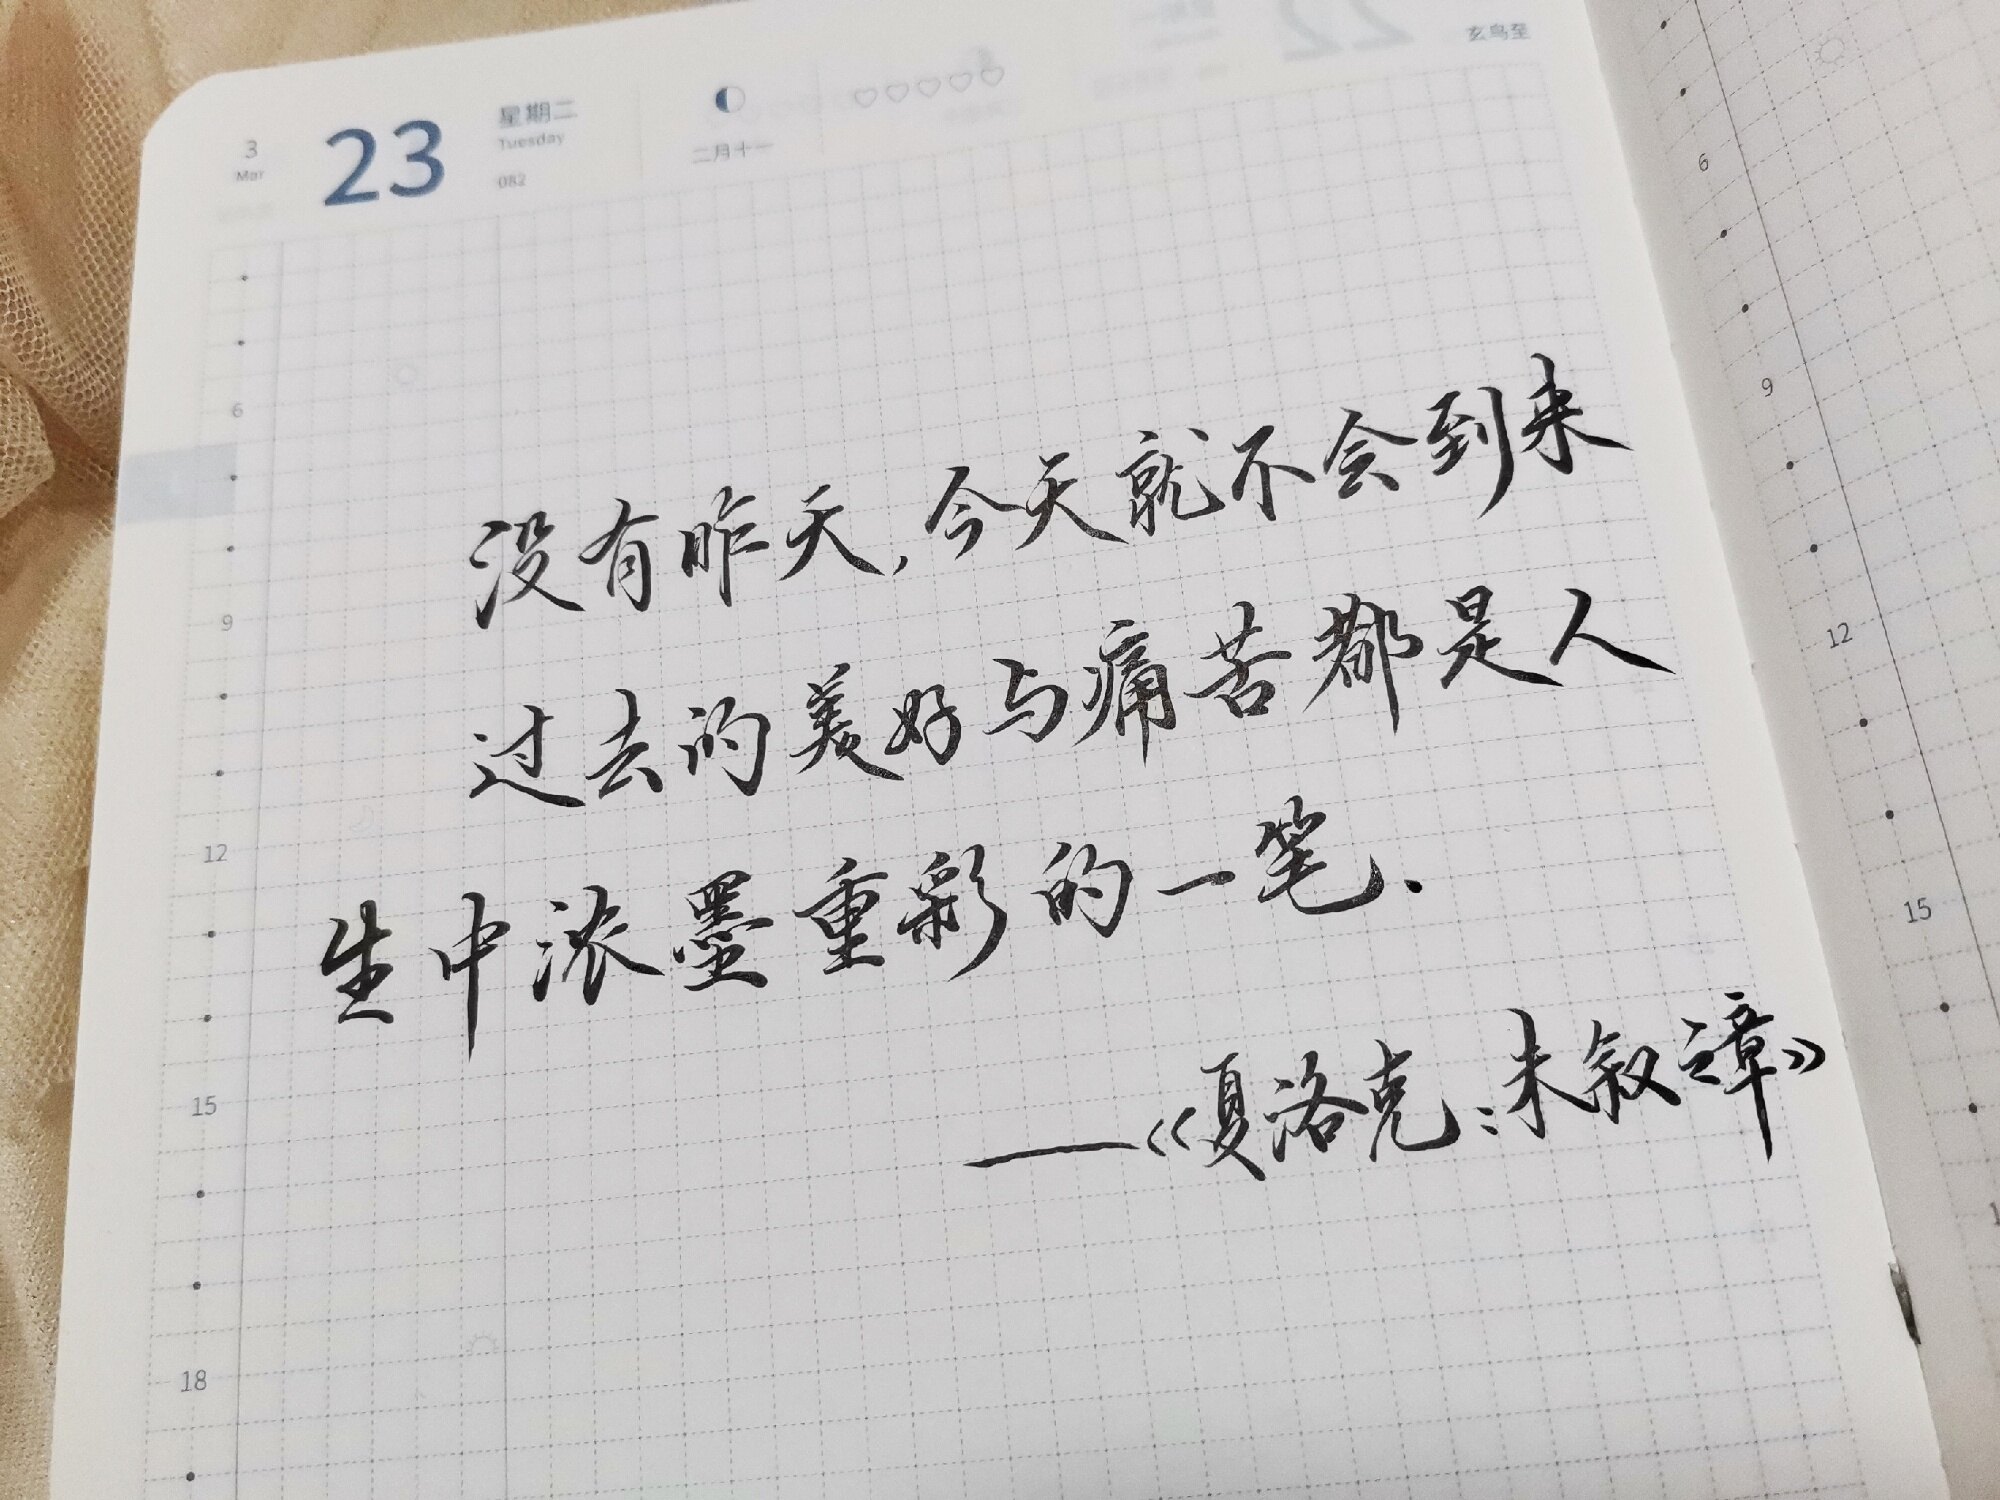 3
Mar
23
星期二
Tuesday
082
二月十一
玄鸟至
没有昨天，今天就不会到来
过去的美好与痛苦都是人
生中浓墨重彩的一笔.
——《夏洛克：未叙之章》
6
9
12
15
18
6
9
12
15